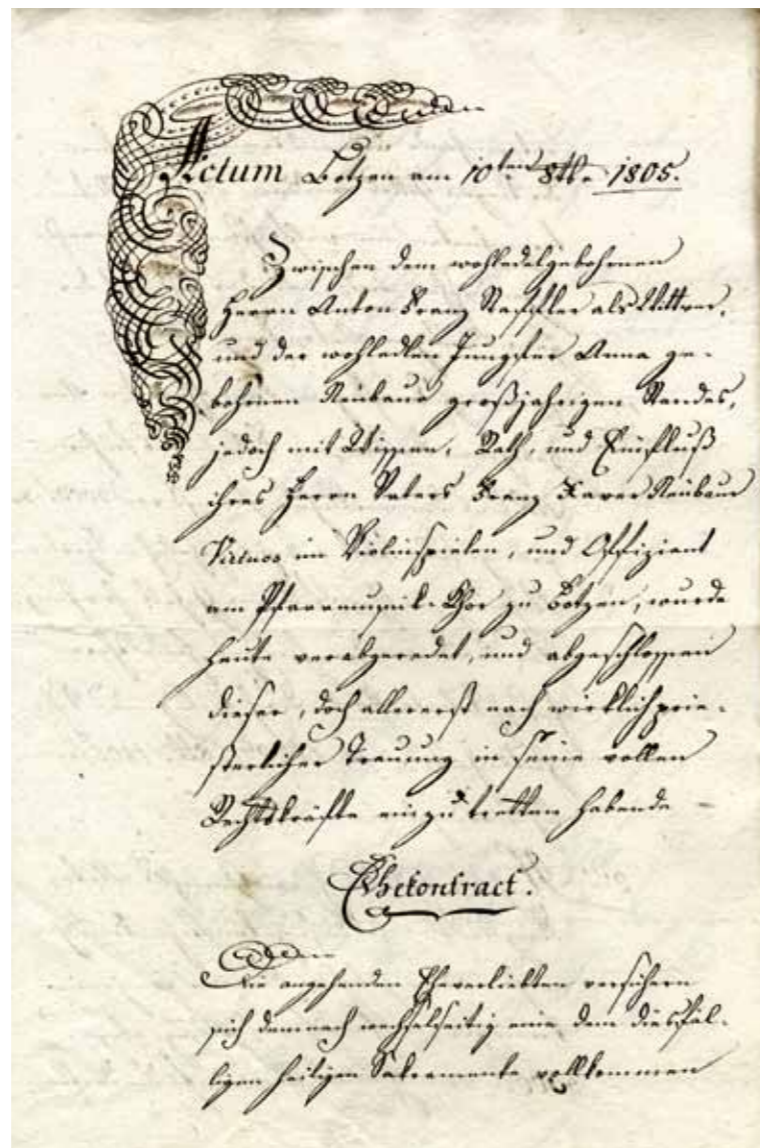 Actum Botzen am 10ten 8tbr 1805.
Zwischen dem wohledelgebohrnen
Herrn Anton Franz Staffler als Wittwer,
und der wohledlen Jungfer Anna ge-
bohrnen Neubaur großjährigen Standes,
jedoch mit Wissen, Rath, und Einfluß
ihres Herrn Vaters Franz Xaver Neubaur
Virtuos im Violinspielen, und Offiziant
am Pfarrmusik-Chor zu Botzen, wurde
heute verabgeredet, und abgeschlossen
dieser, doch allererst nach wirklich prie-
sterlicher Trauung in seine vollen
Rechtskräfte einzutretten habende
Ehekontract.
Die angehenden Eheverliebten versichern
sich demnach wechselseitig eine dem diesfäl-
ligen heiligen Sakramente vollkommen